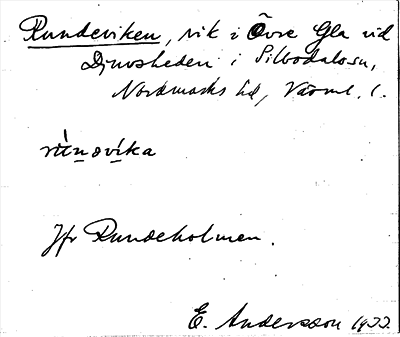 Rundeviken, vik i Övre Gla vid
Djuvsheden i Silbodals sn,
Nordmarks hd, Värml. l.
Jfr Rundeholmen.
E. Andersson 1933.